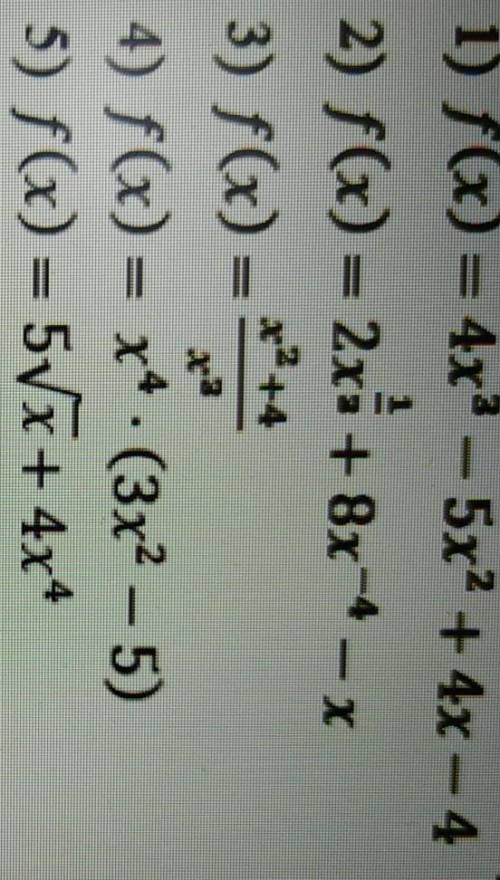 1) f(x) = 4x³ − 5x² + 4x − 4
2) f(x) = 2x^(1/2) + 8x⁻⁴ − x
3) f(x) = (x²+4)/x³
4) f(x) = x⁴ · (3x² − 5)
5) f(x) = 5√x + 4x⁴